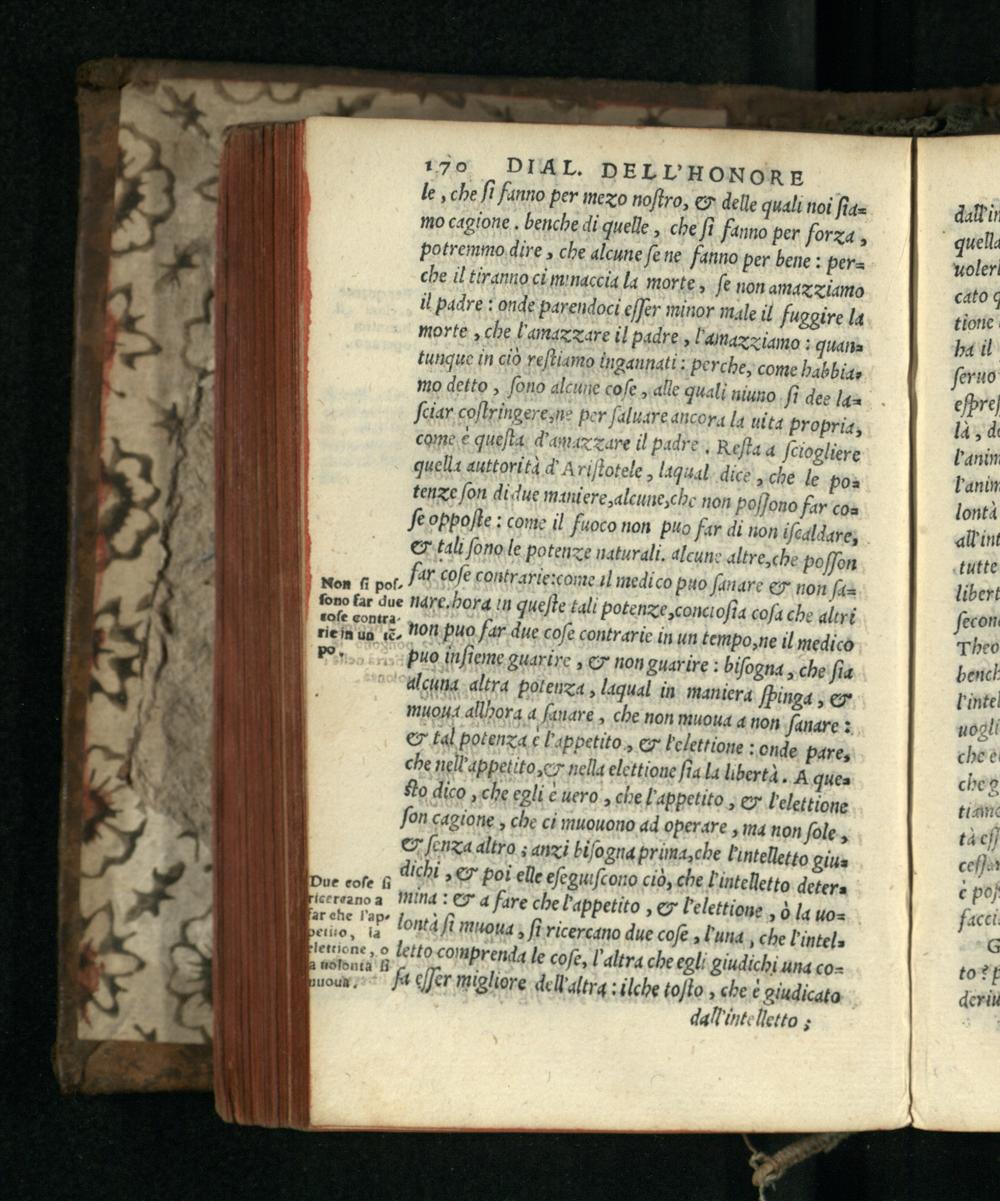 170 DIAL. DELL'HONORE
le, che ſi fanno per mezo noſtro, & delle quali noi ſia=
mo cagione. benche di quelle, che ſi fanno per forza,
potremmo dire, che alcune ſe ne fanno per bene: per=
che il tiranno ci minaccia la morte, ſe non amazziamo
il padre: onde parendoci eſſer minor male il fuggire la
morte, che l'amazzare il padre, l'amazziamo: quan=
tunque in ciò reſtiamo ingannati: perche, come habbia=
mo detto, ſono alcune coſe, alle quali niuno ſi dee la=
ſciar coſtringere,ne per ſaluare ancora la uita propria,
come è queſta d'amazzare il padre. Reſta a ſciogliere
quella auttorità d'Ariſtotele, laqual dice, che le po=
tenze ſon di due maniere,alcune,che non poſſono far co=
ſe oppoſte: come il fuoco non puo far di non iſcaldare,
& tali ſono le potenze naturali. alcune altre,che poſſon
far coſe contrarie:come il medico puo ſanare & non ſa=
nare.hora in queſte tali potenze,concioſia coſa che altri
non puo far due coſe contrarie in un tempo,ne il medico
puo inſieme guarire, & non guarire: biſogna, che ſia
alcuna altra potenza, laqual in maniera ſpinga, &
muoua allhora a ſanare, che non muoua a non ſanare:
& tal potenza è l'appetito, & l'elettione: onde pare,
che nell'appetito,& nella elettione ſia la libertà. A que=
ſto dico, che egli è uero, che l'appetito, & l'elettione
ſon cagione, che ci muouono ad operare, ma non ſole,
& ſenza altro; anzi biſogna prima,che l'intelletto giu=
dichi, & poi elle eſeguiſcono ciò, che l'intelletto deter=
mina: & a fare che l'appetito, & l'elettione, ò la uo=
lontà ſi muoua, ſi ricercano due coſe, l'una, che l'intel=
letto comprenda le coſe, l'altra che egli giudichi una co=
ſa eſſer migliore dell'altra: ilche toſto, che è giudicato
dall'intelletto;
Non ſi poſ-
ſono far due
coſe contra-
rie in un tē-
po.
Due coſe ſi
ricercano a
far che l'ap-
petito, la
elettione, o
la uolontà ſi
muoua.
dall'in
quella
uolerl
cato q
tione
ha il
ſeruo
eſpreſ
là, de
l'anim
l'anim
lontà
all'int
tutte
libert
ſecon
Theo
bench
l'intel
uogli
che e
che g
tiamo
tà eſſ
ceſſar
è poſ
facci
G
to? p
deriu